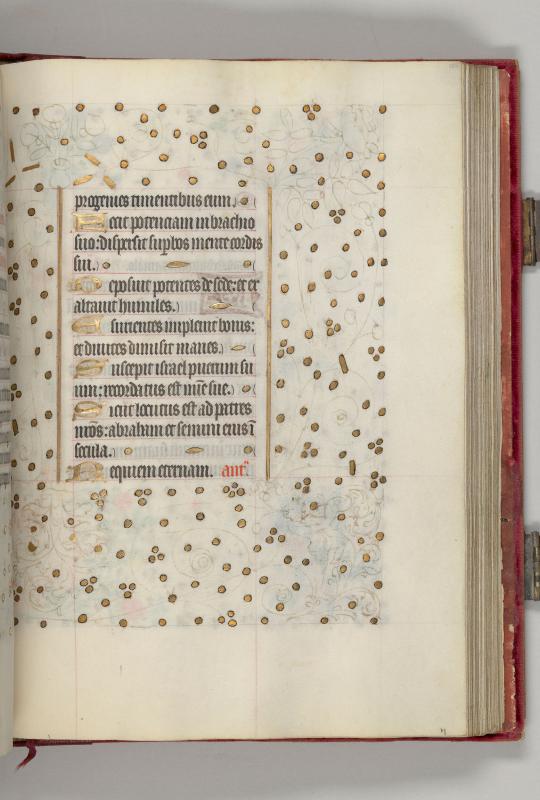 progenies timentibus eum.
Fecit potenciam in brachio
suo: dispersit sup̄bos mente cordis
sui.
Deposuit potentes de sede: et ex
altauit humiles.
Esurientes impleuit bonis:
et diuites dimisit inanes.
Suscepit israel puerum su
um: recordatus est mīe sue.
Sicut locutus est ad patres
nr̄os: abraham et semini eius ī
secula.
Requiem eternam. ant̄.